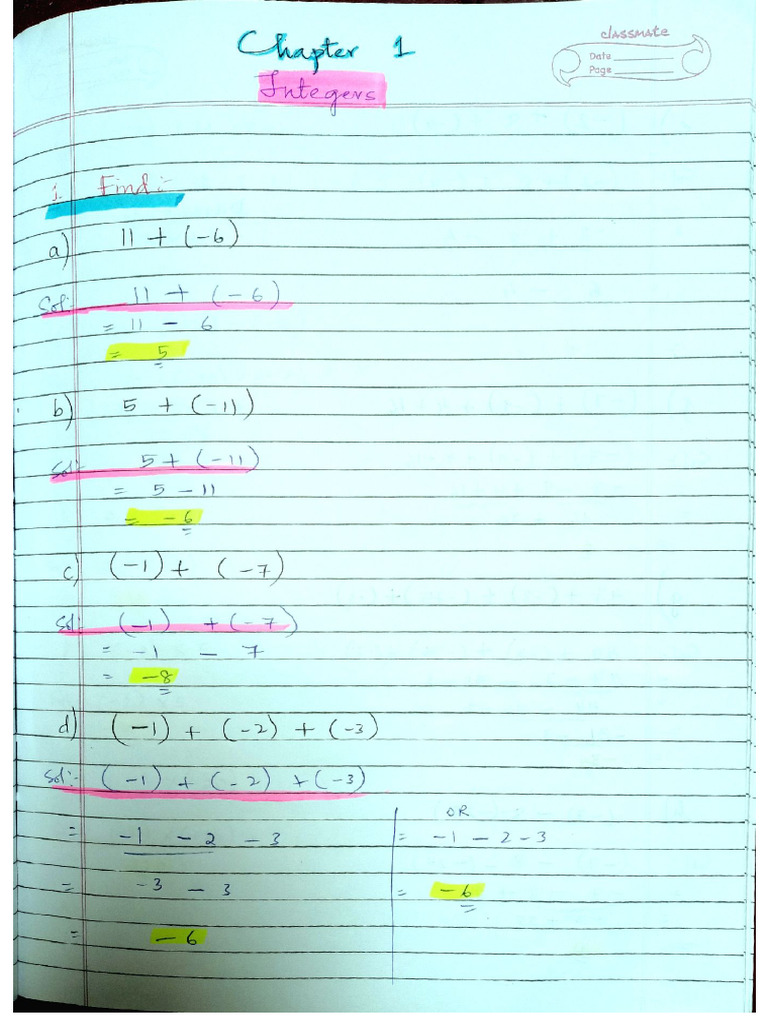 Chapter 1
classmate
Date
Page
Integers
1. Find :-
a) 11 + (-6)
Sol:- 11 + (-6)
= 11 - 6
= 5
b) 5 + (-11)
Sol:- 5 + (-11)
= 5 - 11
= - 6
c) (-1) + (-7)
Sol:- (-1) + (-7)
= -1 - 7
= -8
d) (-1) + (-2) + (-3)
Sol:- (-1) + (-2) + (-3)
= -1 - 2 - 3
= -3 - 3
= - 6
OR
= -1 - 2 - 3
= - 6